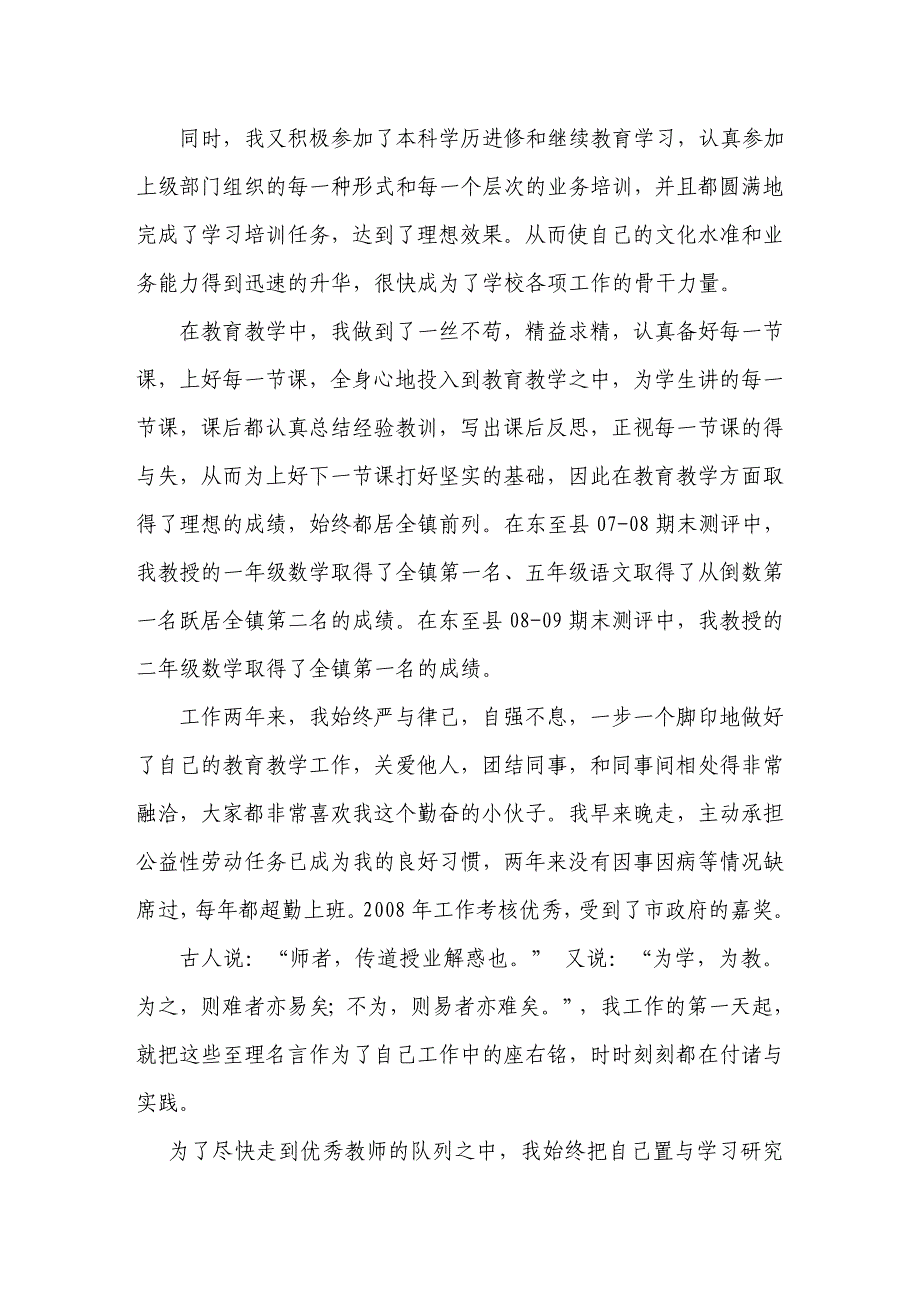 同时，我又积极参加了本科学历进修和继续教育学习，认真参加
上级部门组织的每一种形式和每一个层次的业务培训，并且都圆满地
完成了学习培训任务，达到了理想效果。从而使自己的文化水准和业
务能力得到迅速的升华，很快成为了学校各项工作的骨干力量。
在教育教学中，我做到了一丝不苟，精益求精，认真备好每一节
课，上好每一节课，全身心地投入到教育教学之中，为学生讲的每一
节课，课后都认真总结经验教训，写出课后反思，正视每一节课的得
与失，从而为上好下一节课打好坚实的基础，因此在教育教学方面取
得了理想的成绩，始终都居全镇前列。在东至县 07-08 期末测评中，
我教授的一年级数学取得了全镇第一名、五年级语文取得了从倒数第
一名跃居全镇第二名的成绩。在东至县 08-09 期末测评中，我教授的
二年级数学取得了全镇第一名的成绩。
工作两年来，我始终严与律己，自强不息，一步一个脚印地做好
了自己的教育教学工作，关爱他人，团结同事，和同事间相处得非常
融洽，大家都非常喜欢我这个勤奋的小伙子。我早来晚走，主动承担
公益性劳动任务已成为我的良好习惯，两年来没有因事因病等情况缺
席过，每年都超勤上班。2008 年工作考核优秀，受到了市政府的嘉奖。
古人说：“师者，传道授业解惑也。” 又说：“为学，为教。
为之，则难者亦易矣；不为，则易者亦难矣。”，我工作的第一天起，
就把这些至理名言作为了自己工作中的座右铭，时时刻刻都在付诸与
实践。
为了尽快走到优秀教师的队列之中，我始终把自己置与学习研究